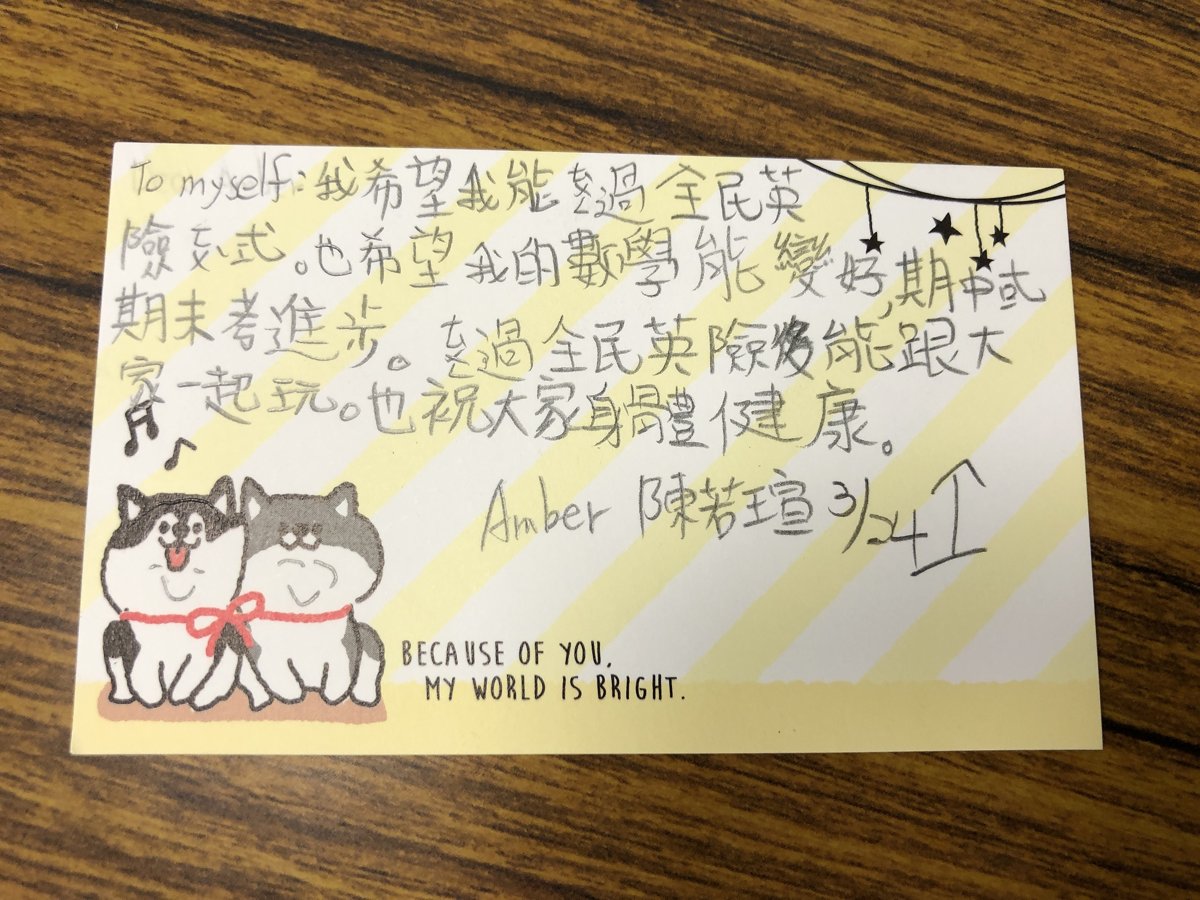 To myself: 我希望我能 過全民英
險 式。也希望我的數學能變好,期中或
期末考進步。 過全民英險後能跟大
家一起玩。也祝大家身體健康。
Amber 陳若瑄 3/24
BECAUSE OF YOU,
MY WORLD IS BRIGHT.